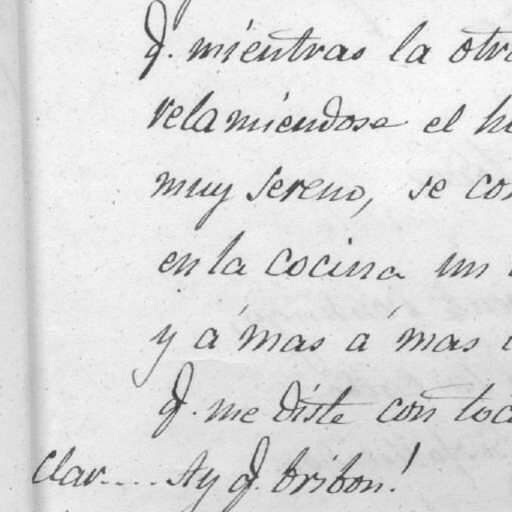 q. mientras la otra
relamiendose el
muy sereno, se
en la cocina un
y á mas á mas
q. me diste con
clar.... Ay q. bribon!